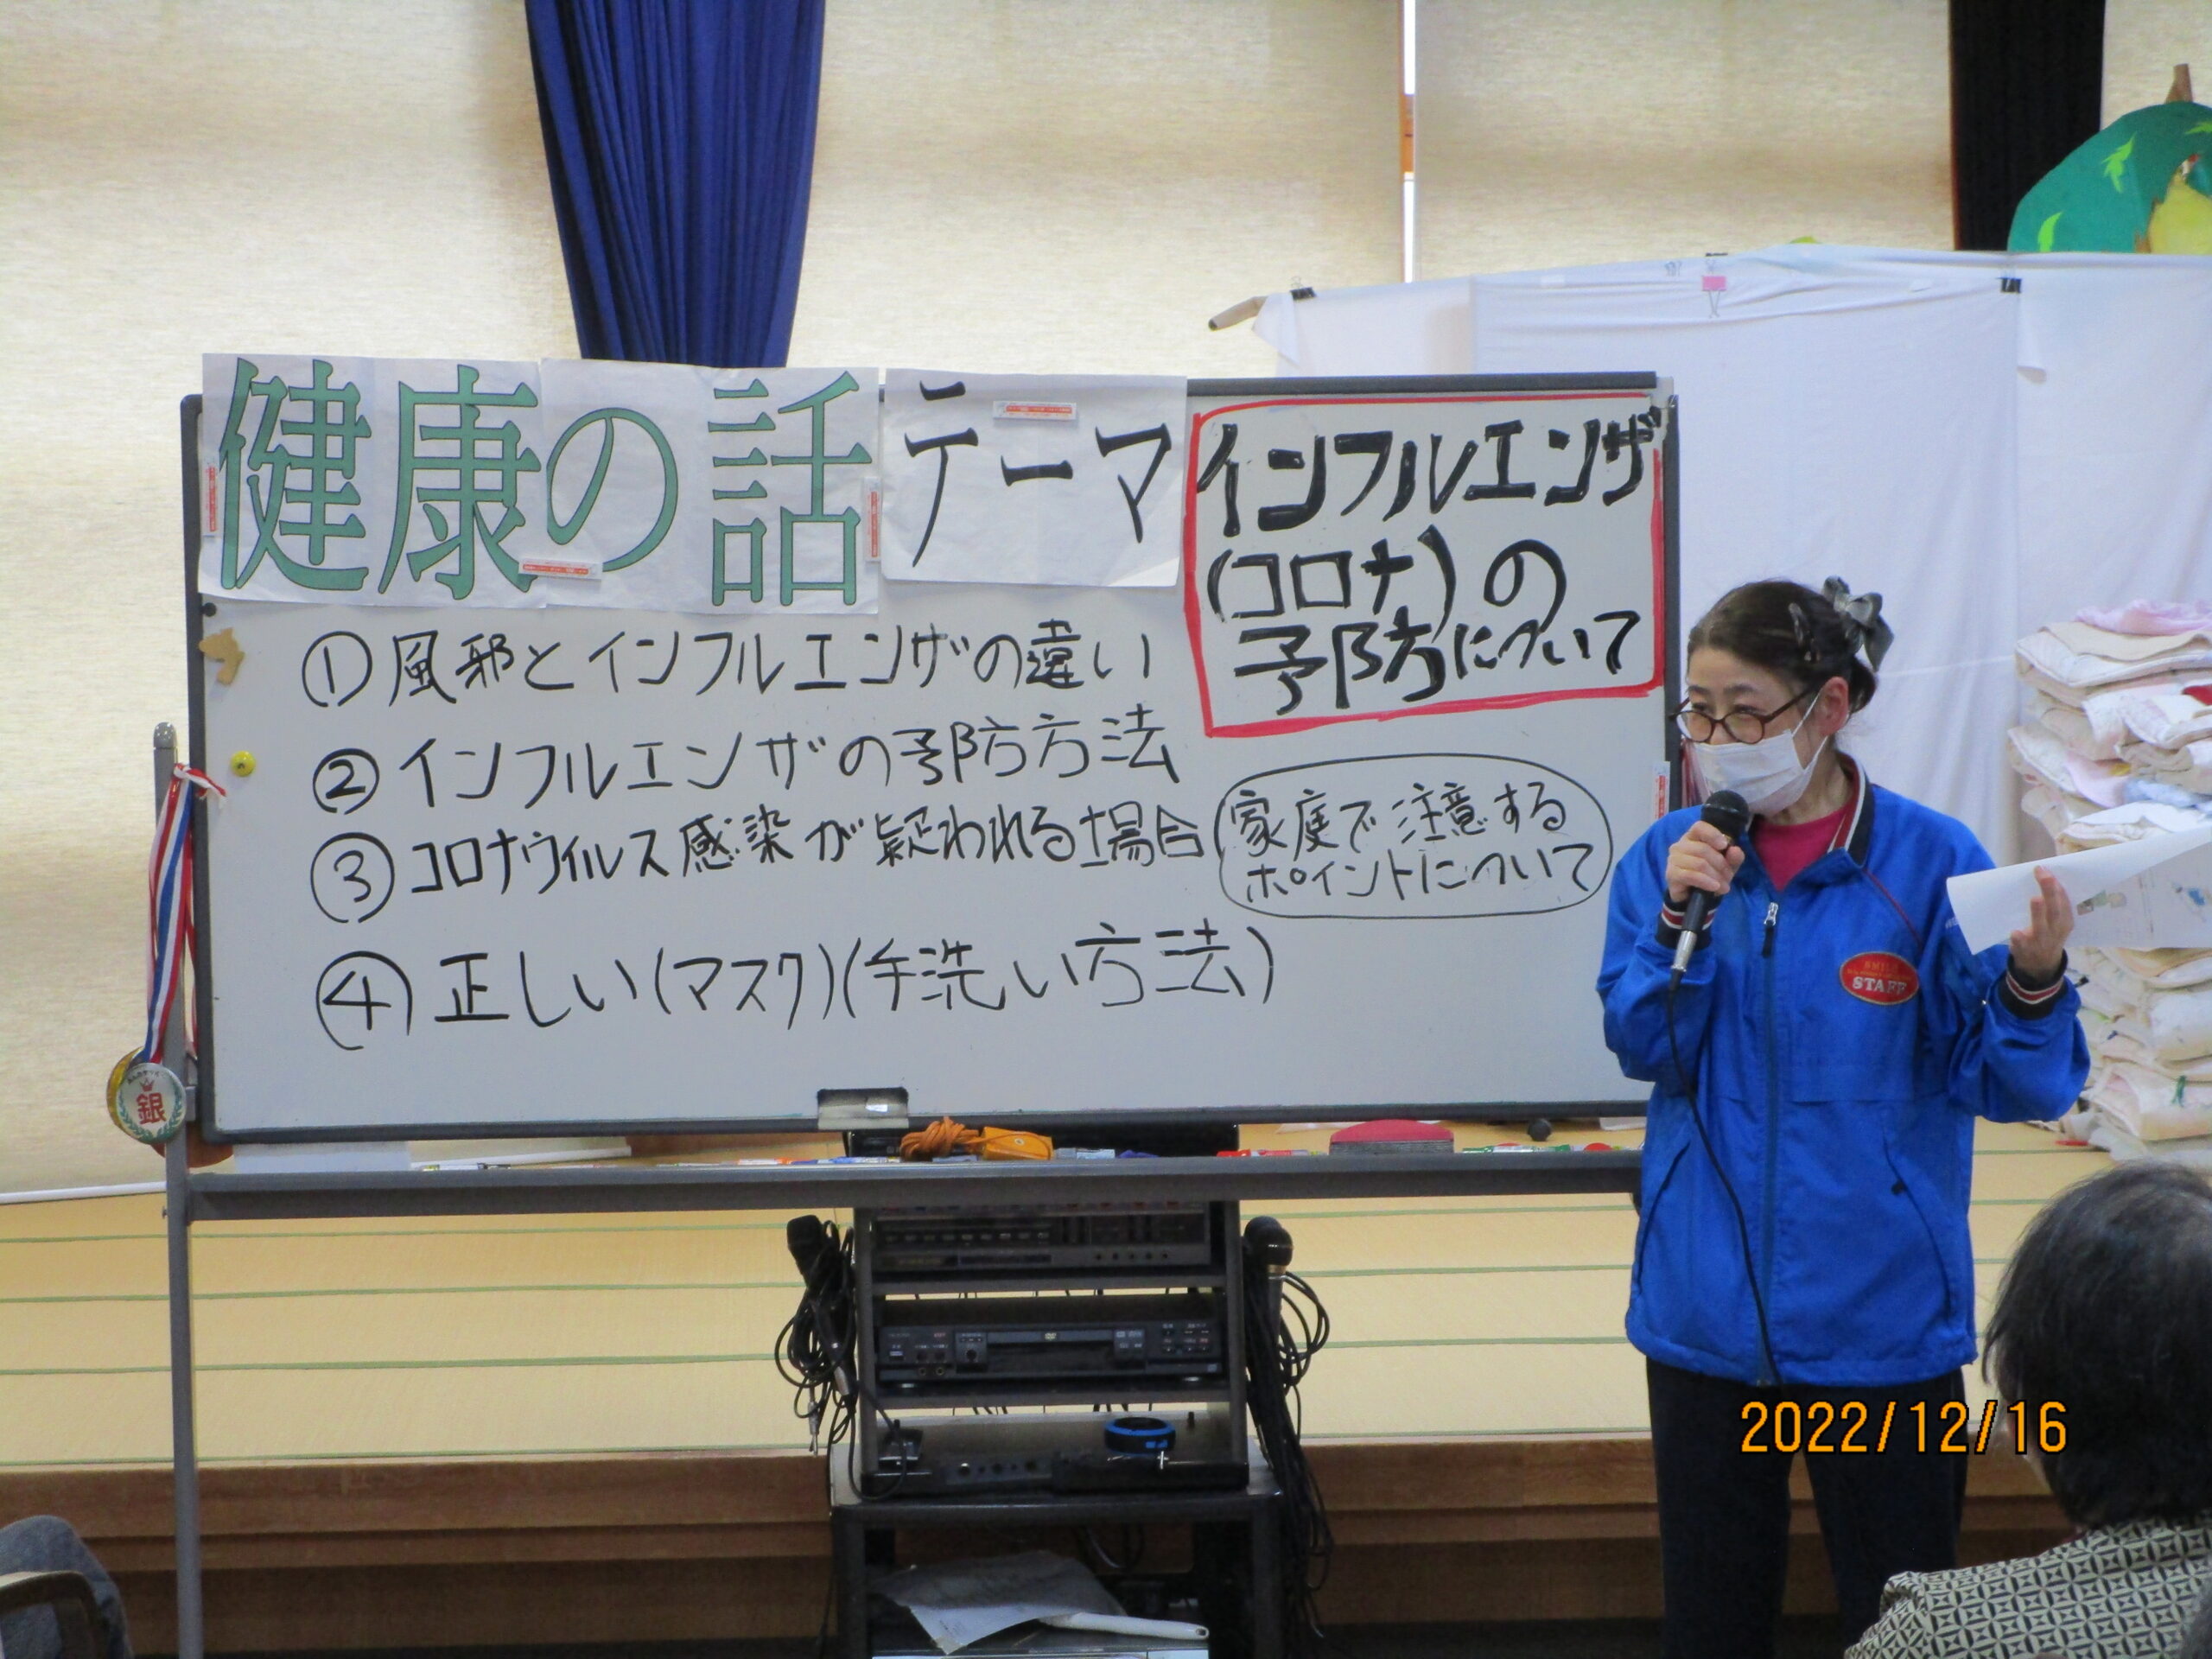 健康の話 テーマ
インフルエンザ
(コロナ)の
予防について
①風邪とインフルエンザの違い
②インフルエンザの予防方法
③コロナウイルス感染が疑われる場合
家庭で注意する
ポイントについて
④正しい(マスク)(手洗い方法)
銀
SMILE
STAFF
2022/12/16